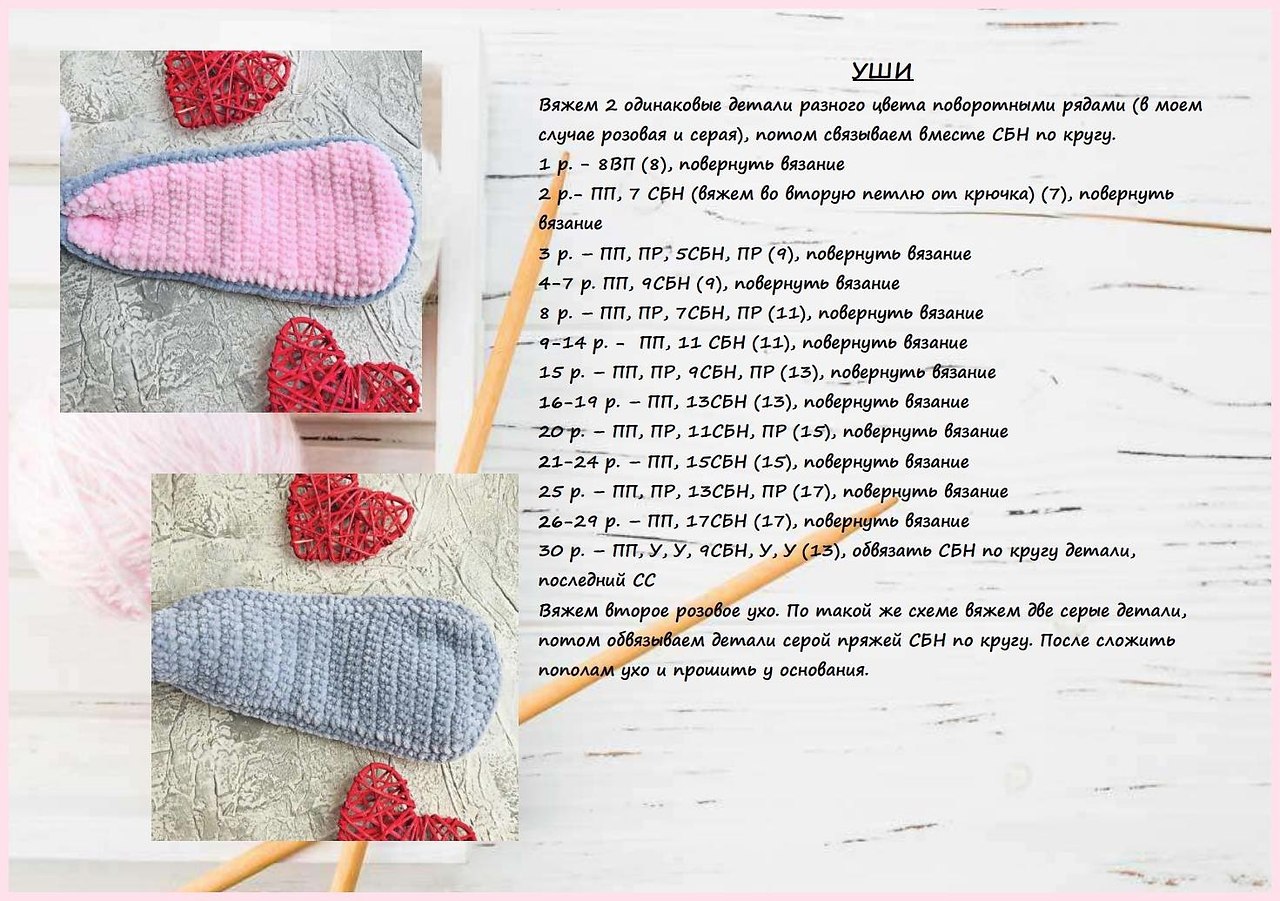 УШИ
Вяжем 2 одинаковые детали разного цвета поворотными рядами (в моем
случае розовая и серая), потом связываем вместе СБН по кругу.
1 р. - 8ВП (8), повернуть вязание
2 р.- ПП, 7 СБН (вяжем во вторую петлю от крючка) (7), повернуть
вязание
3 р. – ПП, ПР, 5СБН, ПР (9), повернуть вязание
4-7 р. ПП, 9СБН (9), повернуть вязание
8 р. – ПП, ПР, 7СБН, ПР (11), повернуть вязание
9-14 р. - ПП, 11 СБН (11), повернуть вязание
15 р. – ПП, ПР, 9СБН, ПР (13), повернуть вязание
16-19 р. – ПП, 13СБН (13), повернуть вязание
20 р. – ПП, ПР, 11СБН, ПР (15), повернуть вязание
21-24 р. – ПП, 15СБН (15), повернуть вязание
25 р. – ПП, ПР, 13СБН, ПР (17), повернуть вязание
26-29 р. – ПП, 17СБН (17), повернуть вязание
30 р. – ПП, У, У, 9СБН, У, У (13), обвязать СБН по кругу детали,
последний СС
Вяжем второе розовое ухо. По такой же схеме вяжем две серые детали,
потом обвязываем детали серой пряжей СБН по кругу. После сложить
пополам ухо и прошить у основания.